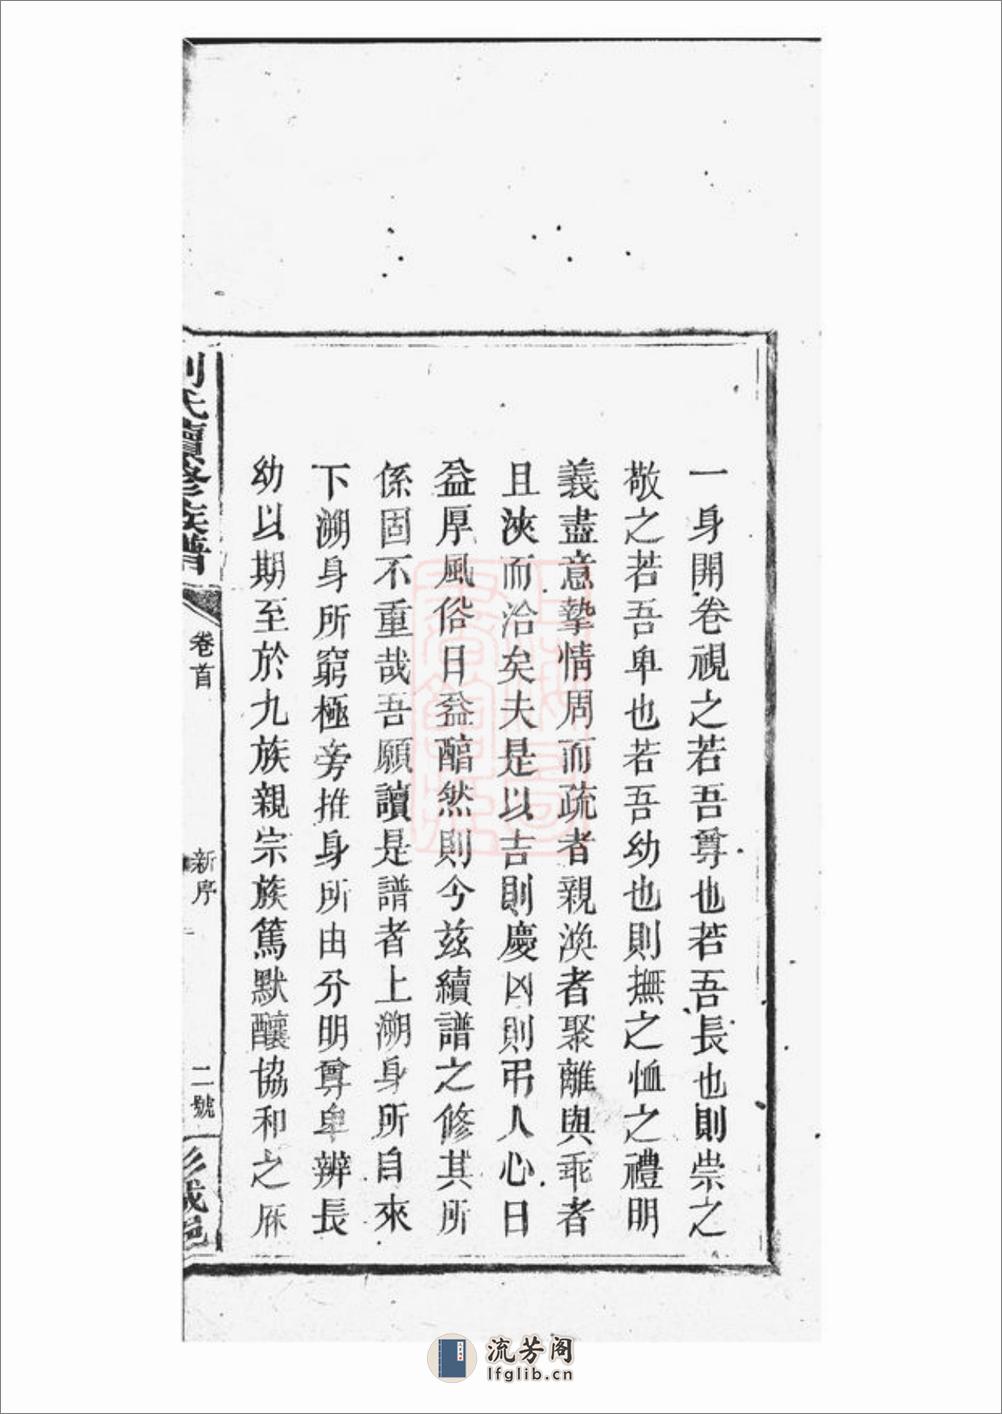 一身開卷視之若吾尊也若吾長也則崇之
敬之若吾卑也若吾幼也則撫之恤之禮明
義盡意摯情周而疏者親渙者聚離與乖者
且浹而洽矣夫是以吉則慶凶則弔人心日
益厚風俗日益醕然則今兹續譜之修其所
係固不重哉吾願讀是譜者上溯身所自來
下溯身所窮極旁推身所由分明尊卑辨長
幼以期至於九族親宗族篤默釀協和之庥
劉氏續修族譜
卷首
新序
二號
彭城邑
流芳阁
lfglib.cn